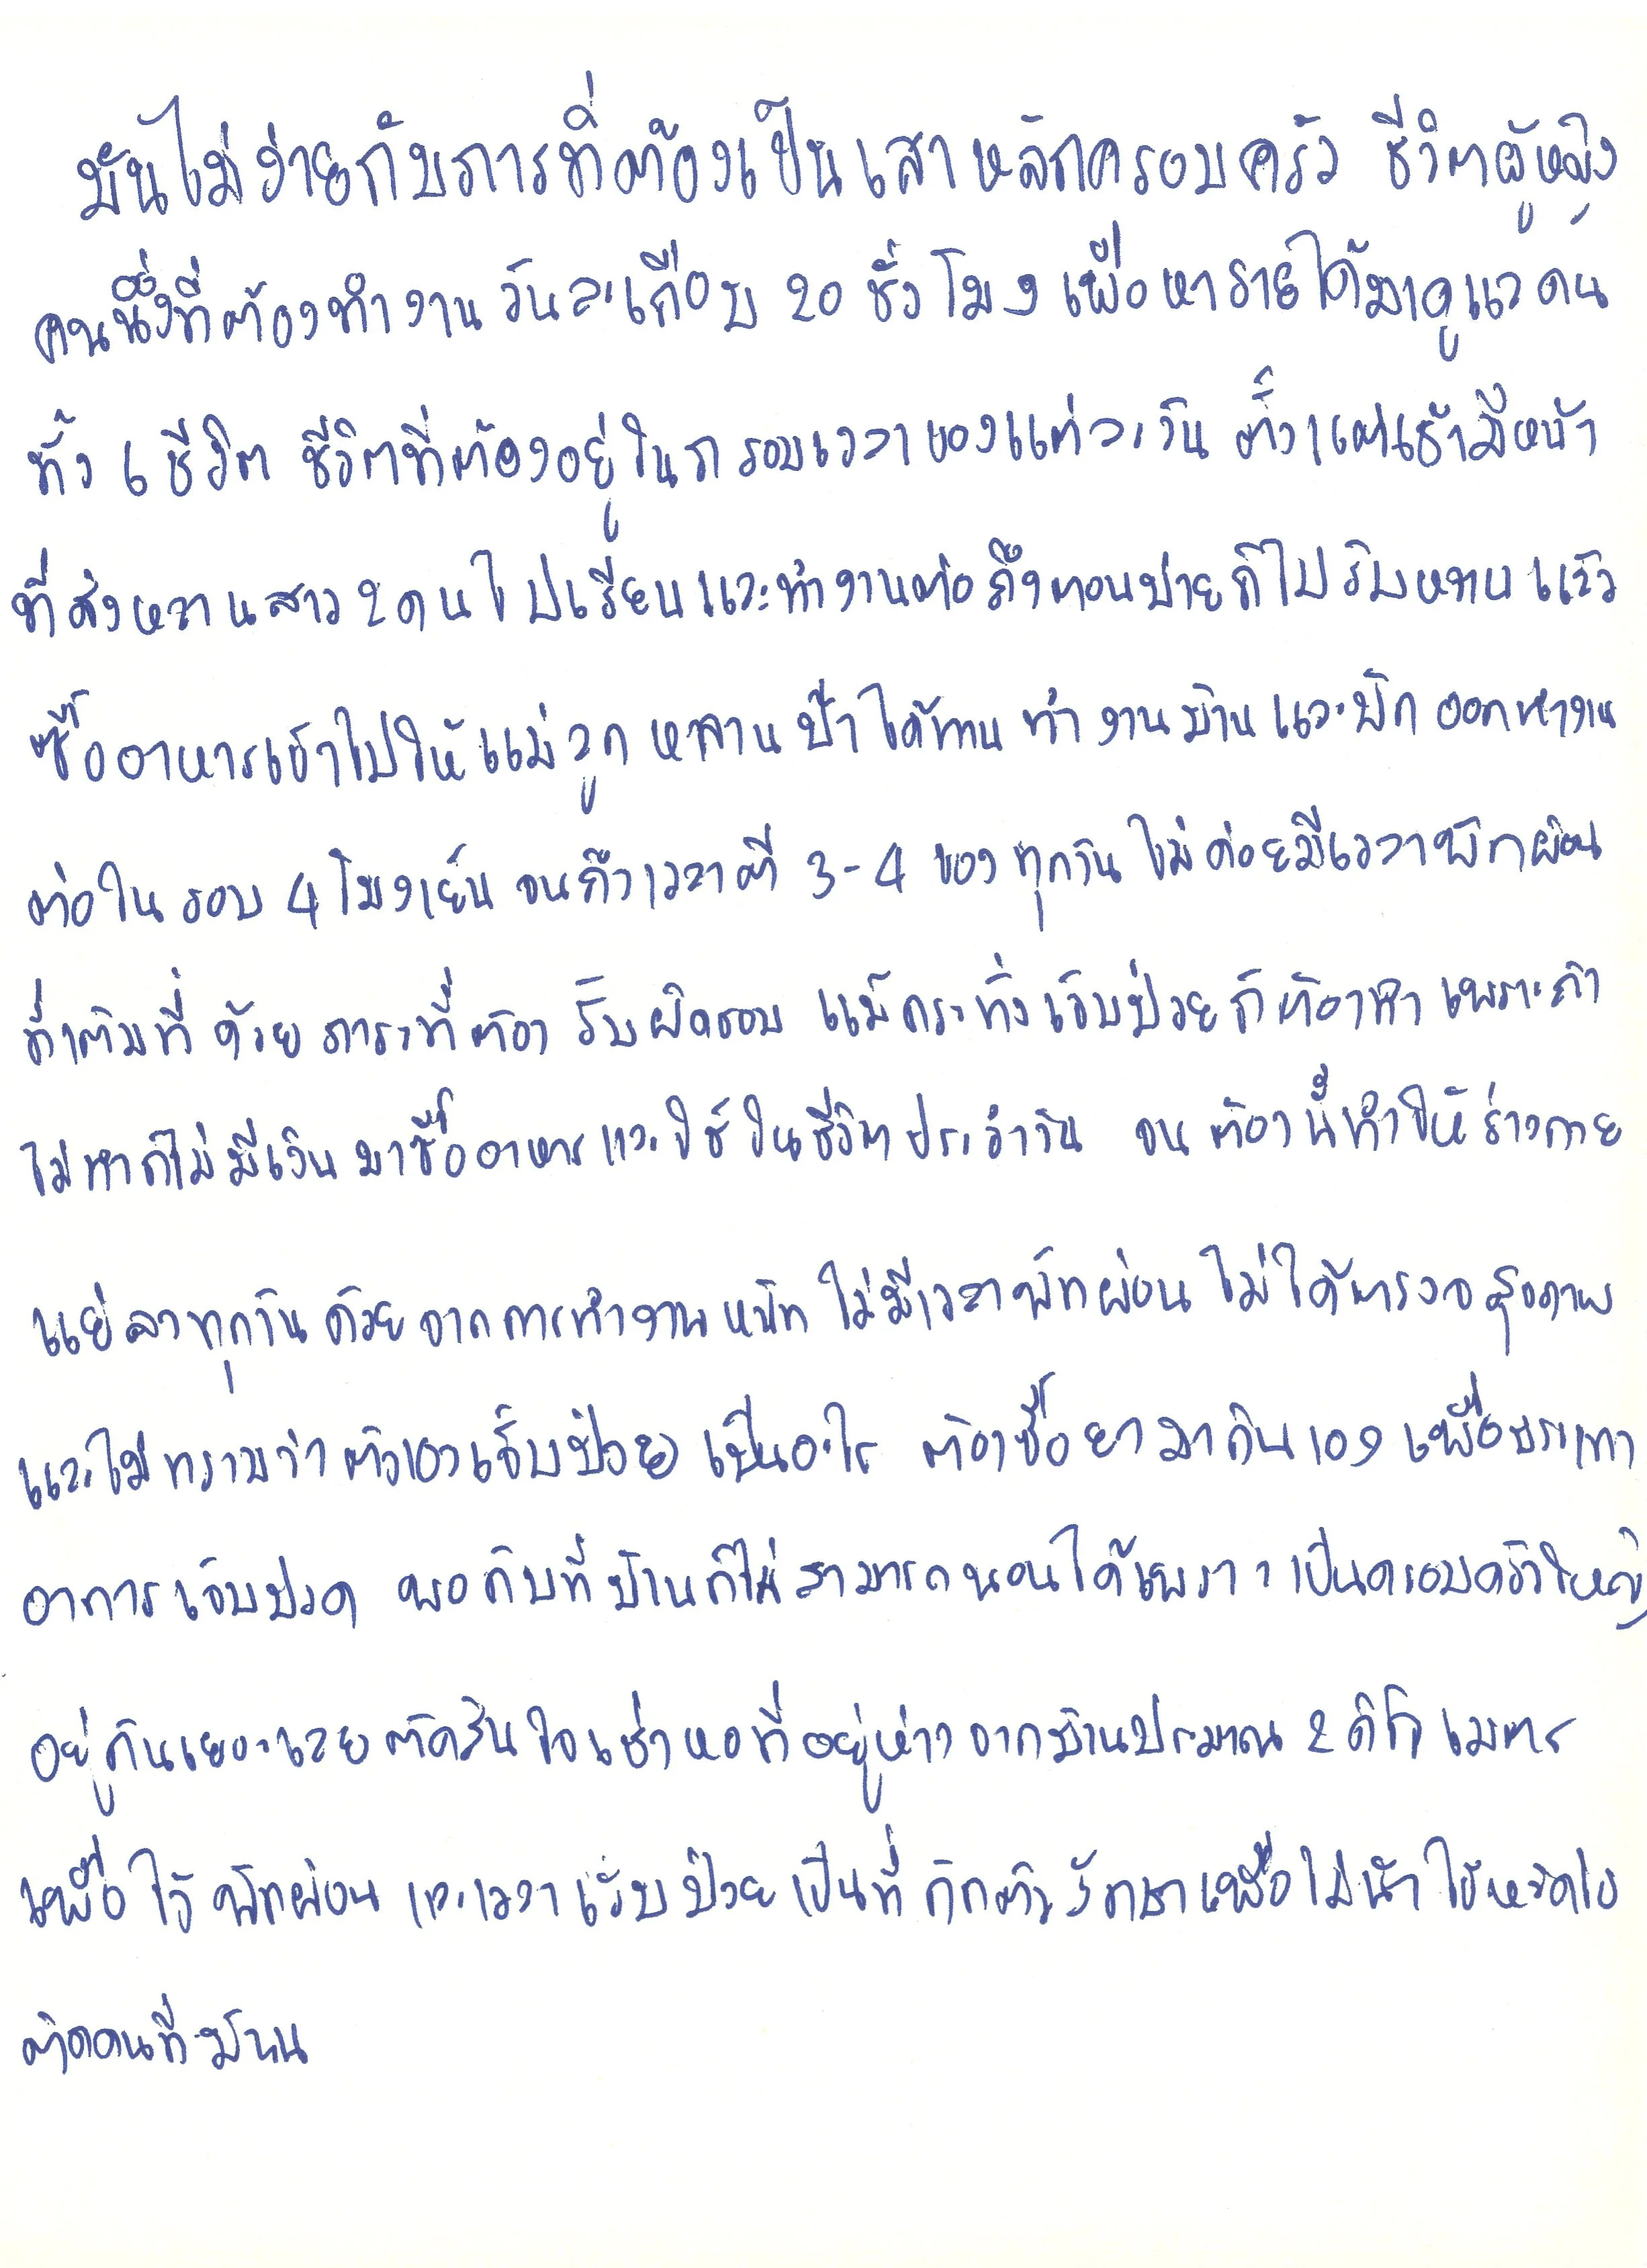 มันไม่ง่ายกับการที่ต้องเป็นเสาหลักครอบครัว ชีวิตผู้หญิง
คนนึงที่ต้องทำงานวันละเกือบ 20 ชั่วโมง เพื่อหารายได้มาดูแลคน
ทั้ง 6 ชีวิต ชีวิตที่ต้องอยู่ในกรอบเวลาของแต่ละวัน ตั้งแต่เช้ามีหน้า
ที่ส่งหลานสาว 2 คนไปเรียนและทำงานต่อถึงตอนบ่ายก็ไปรับหลานแล้ว
ซื้ออาหารเข้าไปให้แม่ลูกหลานป้าได้ทาน ทำงานบ้านและพัก ออกหางาน
ต่อในรอบ 4 โมงเย็น จนถึงเวลาตี 3-4 ของทุกวัน ไม่ค่อยมีเวลาพักผ่อน
ที่เต็มที่ ด้วยภาระที่ต้องรับผิดชอบ แม้กระทั่งเจ็บป่วยก็ต้องทำ เพราะถ้า
ไม่ทำก็ไม่มีเงินมาซื้ออาหารและใช้ในชีวิตประจำวัน จนต้องนี้ทำให้ร่างกาย
แย่ลงทุกวันด้วยจากการทำงานหนัก ไม่มีเวลาพักผ่อน ไม่ได้ตรวจสุขภาพ
และไม่ทราบว่าตัวเองเจ็บป่วย เป็นอะไร ต้องซื้อยามากินเอง เพื่อบรรเทา
อาการเจ็บปวด พอกับที่บ้านก็ไม่สามารถนอนได้เพราะเป็นครอบครัวใหญ่
อยู่กันเยอะเลยตัดสินใจเช่าหอที่อยู่ห่างจากบ้านประมาณ 2 กิโลเมตร
เพื่อไว้พักผ่อน และเวลาเจ็บป่วยเป็นที่กักตัวรักษาเพื่อไม่นำไข้หวัดไป
ติดคนที่บ้าน